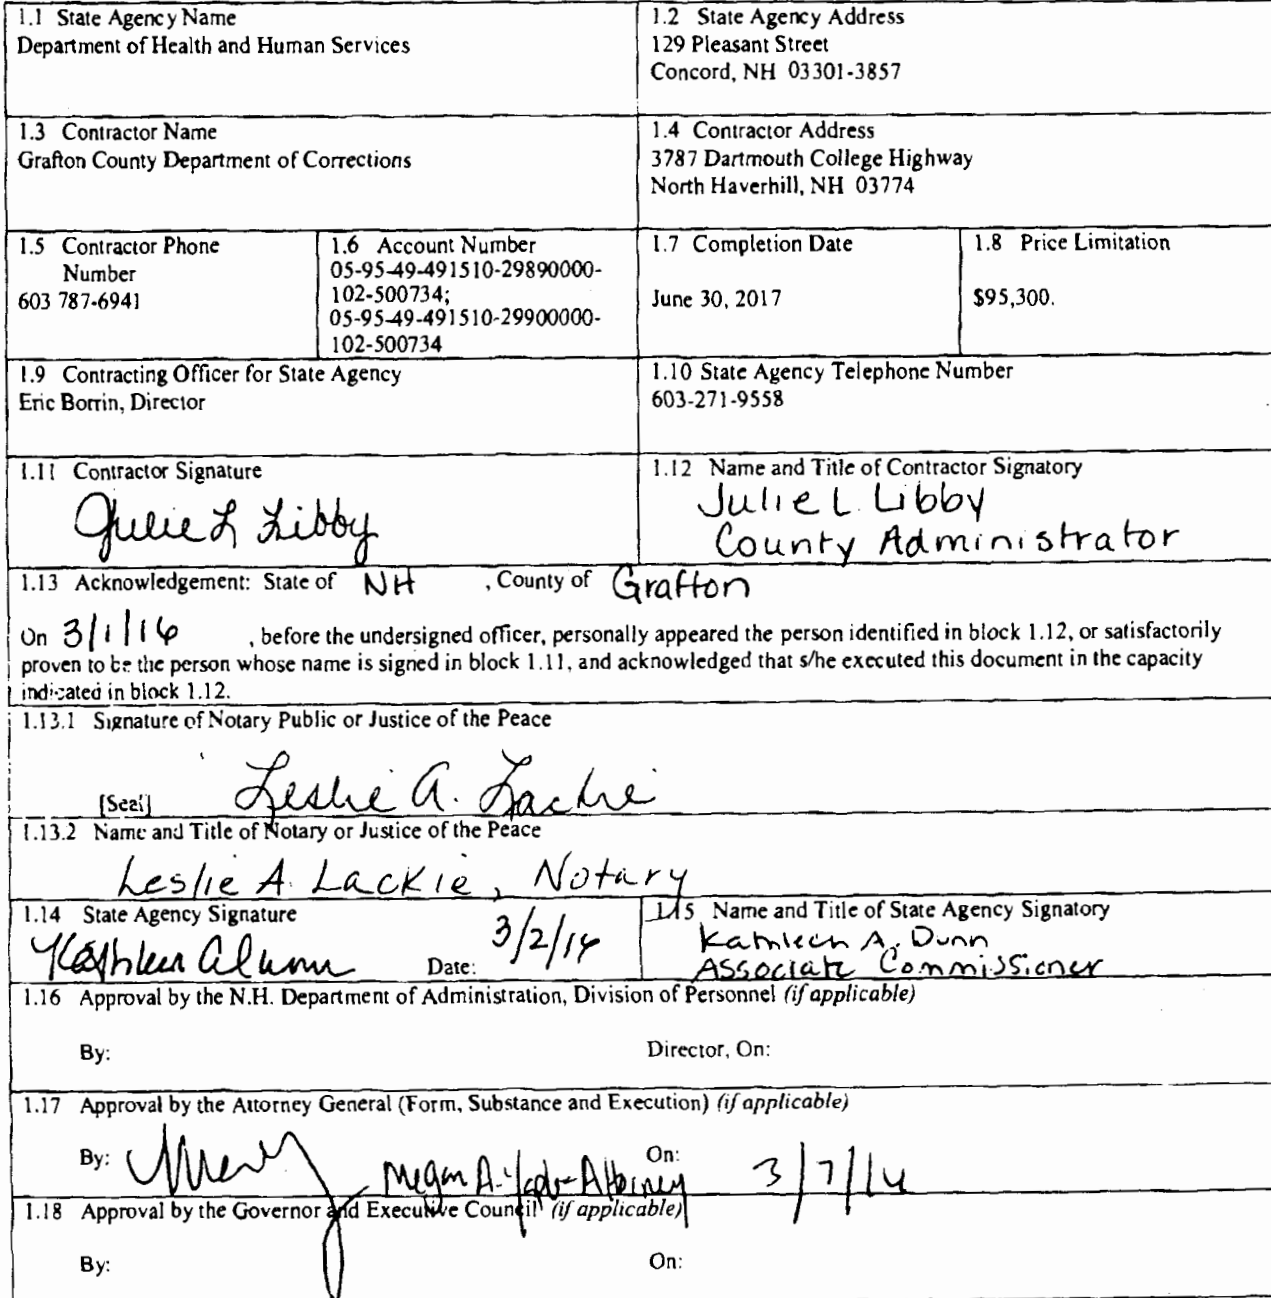 1.1 State Agency Name
Department of Health and Human Services
1.2 State Agency Address
129 Pleasant Street
Concord, NH 03301-3857
1.3 Contractor Name
Grafton County Department of Corrections
1.4 Contractor Address
3787 Dartmouth College Highway
North Haverhill, NH 03774
1.5 Contractor Phone
Number
603 787-6941
1.6 Account Number
05-95-49-491510-29890000-
102-500734;
05-95-49-491510-29900000-
102-500734
1.7 Completion Date
June 30, 2017
1.8 Price Limitation
$95,300.
1.9 Contracting Officer for State Agency
Eric Borrin, Director
1.10 State Agency Telephone Number
603-271-9558
1.11 Contractor Signature
Julie L Libby
1.12 Name and Title of Contractor Signatory
Julie L. Libby
County Administrator
1.13 Acknowledgement: State of NH , County of Grafton
On 3/1/16 , before the undersigned officer, personally appeared the person identified in block 1.12, or satisfactorily
proven to be the person whose name is signed in block 1.11, and acknowledged that s/he executed this document in the capacity
indicated in block 1.12.
1.13.1 Signature of Notary Public or Justice of the Peace
[Seal] Leslie A. Lackie
1.13.2 Name and Title of Notary or Justice of the Peace
Leslie A. Lackie, Notary
1.14 State Agency Signature
Kathleen A Dunn Date: 3/2/16
1.15 Name and Title of State Agency Signatory
Kathleen A. Dunn
Associate Commissioner
1.16 Approval by the N.H. Department of Administration, Division of Personnel (if applicable)
By: Director, On:
1.17 Approval by the Attorney General (Form, Substance and Execution) (if applicable)
By: Megan A. Attorney On: 3/7/16
1.18 Approval by the Governor and Executive Council (if applicable)
By: On: